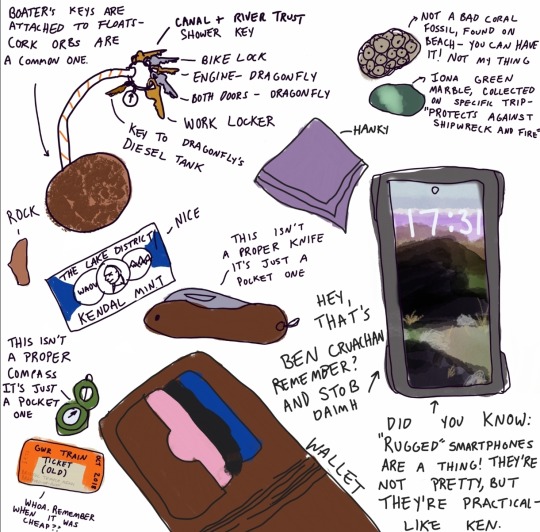 BOATER'S KEYS ARE
ATTACHED TO FLOATS-
CORK ORBS ARE
A COMMON ONE.
CANAL + RIVER TRUST
SHOWER KEY
BIKE LOCK
ENGINE- DRAGONFLY
BOTH DOORS - DRAGONFLY
WORK LOCKER
KEY TO DRAGONFLY'S
DIESEL TANK
NOT A BAD CORAL
FOSSIL, FOUND ON
BEACH- YOU CAN HAVE
IT! NOT MY THING
IONA GREEN
MARBLE, COLLECTED
ON SPECIFIC TRIP-
"PROTECTS AGAINST
SHIPWRECK AND FIRE"
HANKY
ROCK
NICE
THE LAKE DISTRICT
KENDAL MINT
THIS ISN'T
A PROPER KNIFE
IT'S JUST A
POCKET ONE
17:31
HEY,
THAT'S
BEN CRUACHAN
REMEMBER?
AND STOB
DAIMH
THIS ISN'T
A PROPER
COMPASS
IT'S JUST
A POCKET
ONE
GWR TRAIN
TICKET
(OLD)
OCT 2018
WHOA. REMEMBER
WHEN IT WAS
CHEAP??
WALLET
DID YOU KNOW:
"RUGGED" SMARTPHONES
ARE A THING! THEY'RE
NOT PRETTY, BUT
THEY'RE PRACTICAL-
LIKE KEN.